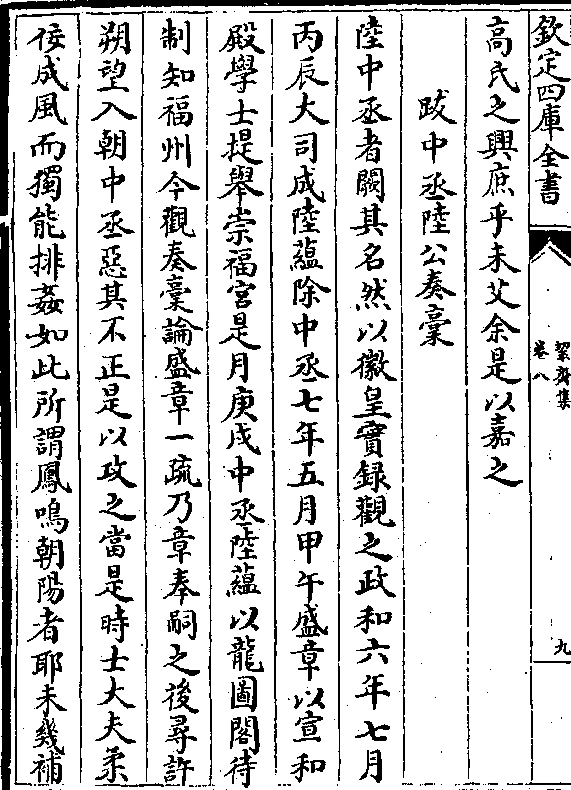 欽定四庫全書
絜齋集
卷八
九
高氏之興庶乎未艾余是以嘉之
跋中丞陸公奏稾
陸中丞者闕其名然以徽皇實録觀之政和六年七月
丙辰大司成陸藴除中丞七年五月甲午盛章以宣和
殿學士提舉崇福宮是月庚戌中丞陸藴以龍圖閣待
制知福州今觀奏稾論盛章一疏乃章奉嗣之後尋許
朔望入朝中丞惡其不正是以攻之當是時士大夫柔
佞成風而獨能排姦如此所謂鳳鳴朝陽者耶未幾補